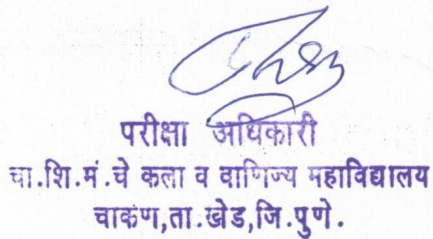 परीक्षा अधिकारी
चा.शि.मं.चे कला व वाणिज्य महाविद्यालय
चाकण,ता.खेड,जि.पुणे.